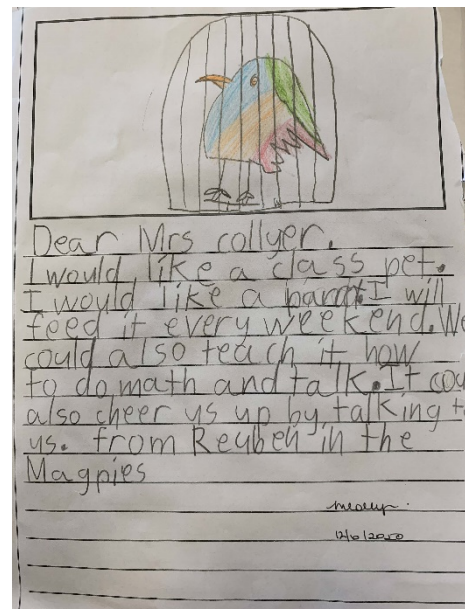 Dear Mrs collyer.
I would like a class pet.
I would like a parrot.I will
feed it every weekend.We
could also teach it how
to do math and talk.It cou
also cheer us up by talking t
us. from Reuben in the
Magpies
12/6/2020